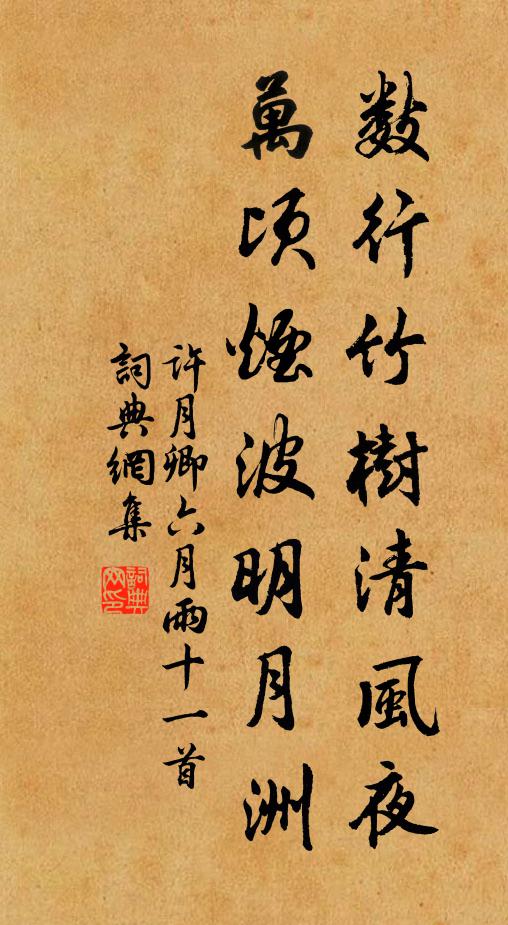 数行竹樹清風夜
萬頃煙波明月洲
許月卿六月雨十一首
詞典網集
詞典网印